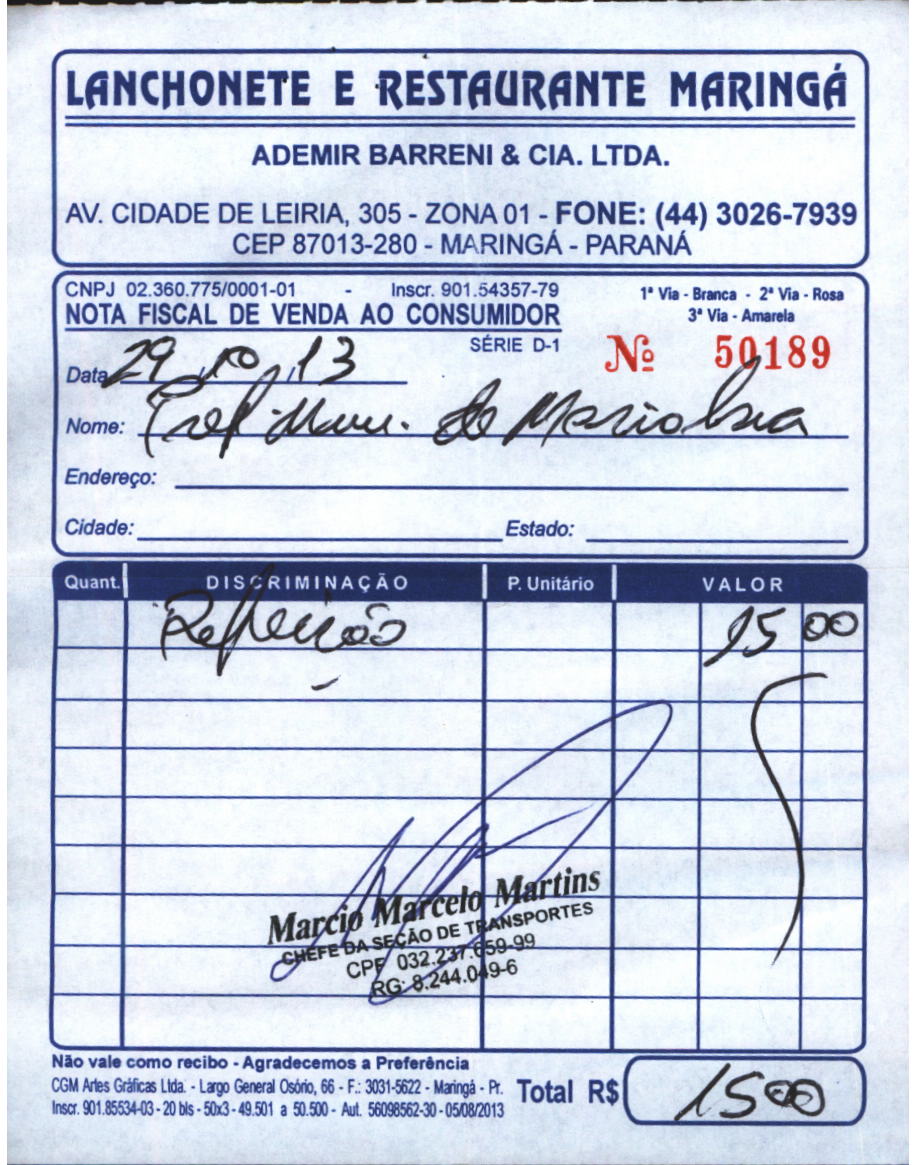 LANCHONETE E RESTAURANTE MARINGÁ
ADEMIR BARRENI & CIA. LTDA.
AV. CIDADE DE LEIRIA, 305 - ZONA 01 - FONE: (44) 3026-7939
CEP 87013-280 - MARINGÁ - PARANÁ
CNPJ 02.360.775/0001-01 - Inscr. 901.54357-79
1ª Via - Branca - 2ª Via - Rosa
3ª Via - Amarela
NOTA FISCAL DE VENDA AO CONSUMIDOR
SÉRIE D-1
Nº 50189
Data 29, 10, 13
Nome: Pref. Mun. de
Endereço:
Cidade: Estado:
Quant. DISCRIMINAÇÃO P. Unitário VALOR
Refeição 15 00
Marcio Marcelo Martins
CHEFE DA SEÇÃO DE TRANSPORTES
CPF 032.237.659-99
RG: 8.244.049-6
Não vale como recibo - Agradecemos a Preferência
CGM Artes Gráficas Ltda. - Largo General Osório, 66 - F.: 3031-5622 - Maringá - Pr.
Inscr. 901.85534-03 - 20 bls - 50x3 - 49.501 a 50.500 - Aut. 56098562-30 - 05/08/2013
Total R$ 15 00